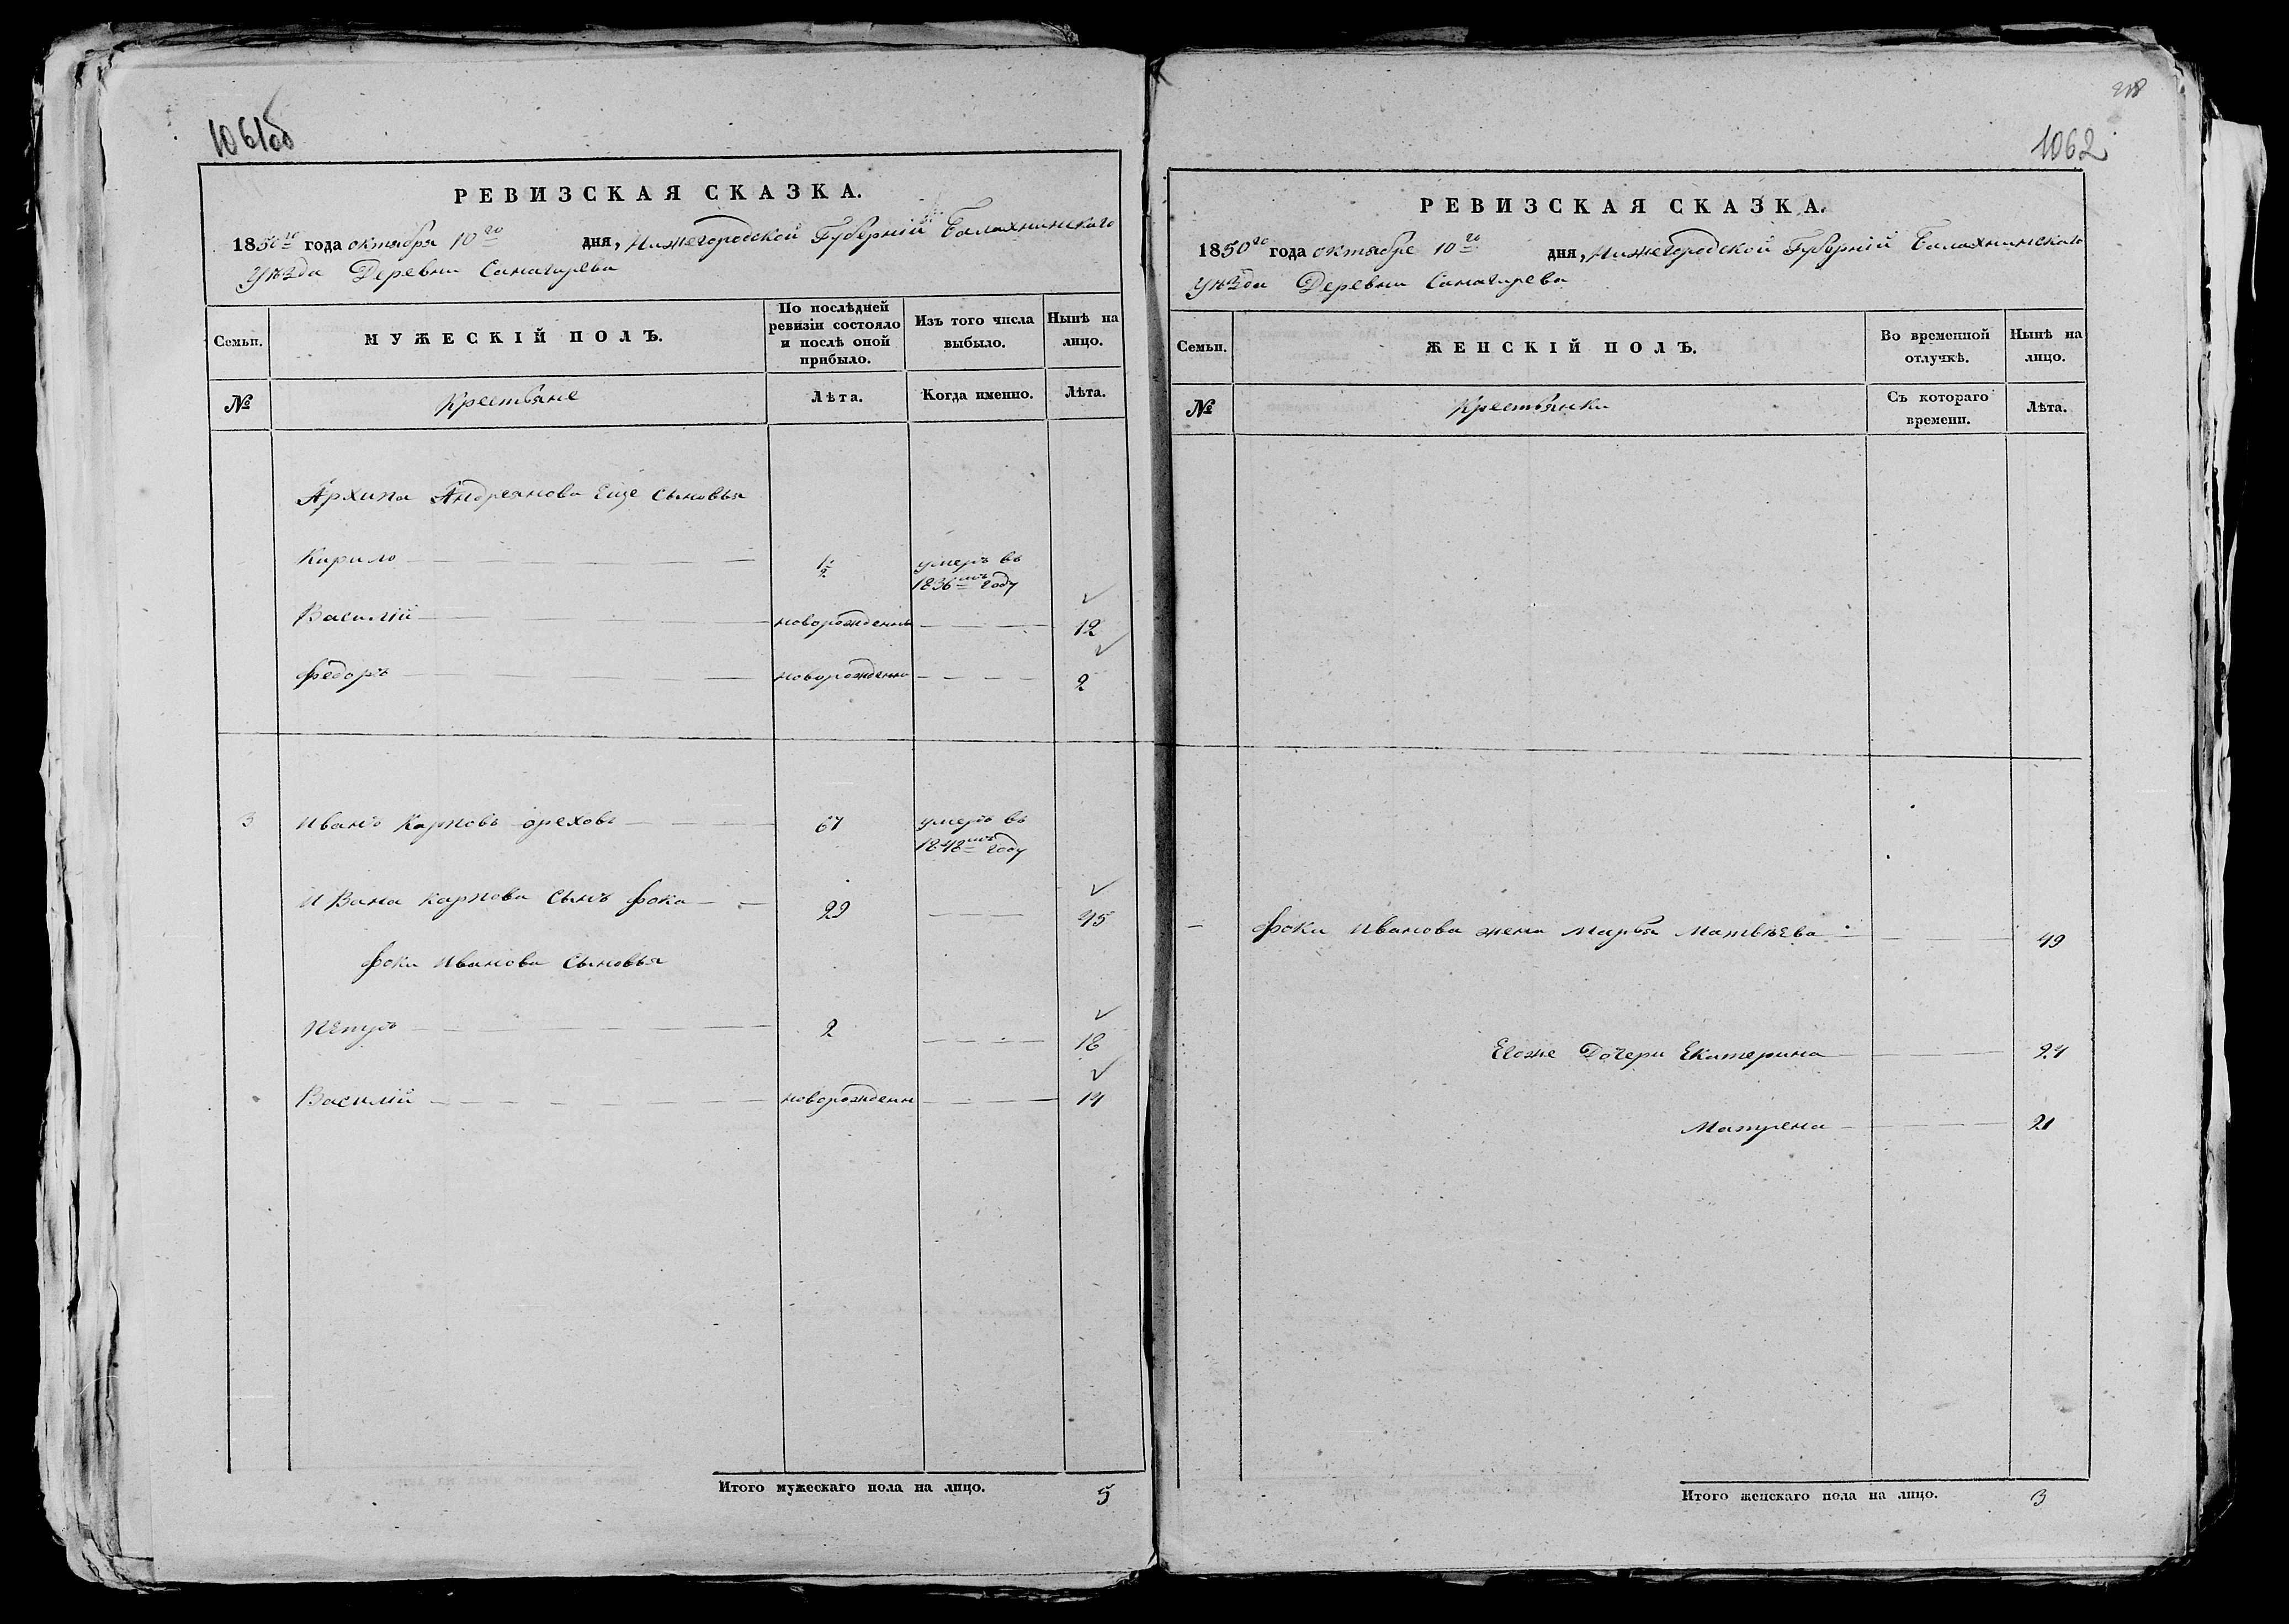 1061об
РЕВИЗСКАЯ СКАЗКА.
1850го года октября 10го дня, Нижегородской Губерніи Балахнинскаго
Уѣзда Деревни
Семьи. МУЖЕСКІЙ ПОЛЪ. По послѣдней ревизіи состояло и послѣ оной прибыло. Изъ того числа выбыло. Нынѣ на лицо.
№ Крестьяне Лѣта. Когда именно. Лѣта.
Архипа Андреянова еще сыновья
Кирило 1/2 умеръ въ
1836мъ году
Василій новорожденны 12
Федоръ новорожденны 2
3 Иванъ Карповъ Ореховъ 67 умеръ въ
1848мъ году
Ивана Карпова сынъ Фока 29 45
Фоки Иванова сыновья
Петръ 2 18
Василій новорожденн 14
Итого мужескаго пола на лицо. 5
218
1062
РЕВИЗСКАЯ СКАЗКА.
1850го года октября 10го дня, Нижегородской Губерніи Балахнинскаго
Уѣзда Деревни
Семьи. ЖЕНСКІЙ ПОЛЪ. Во временной отлучкѣ. Нынѣ на лицо.
№ Крестьянки Съ котораго времени. Лѣта.
Фоки Иванова жена Марья Матвѣева 49
Егоже Дочери Екатерина 24
Матрена 21
Итого женскаго пола на лицо. 3